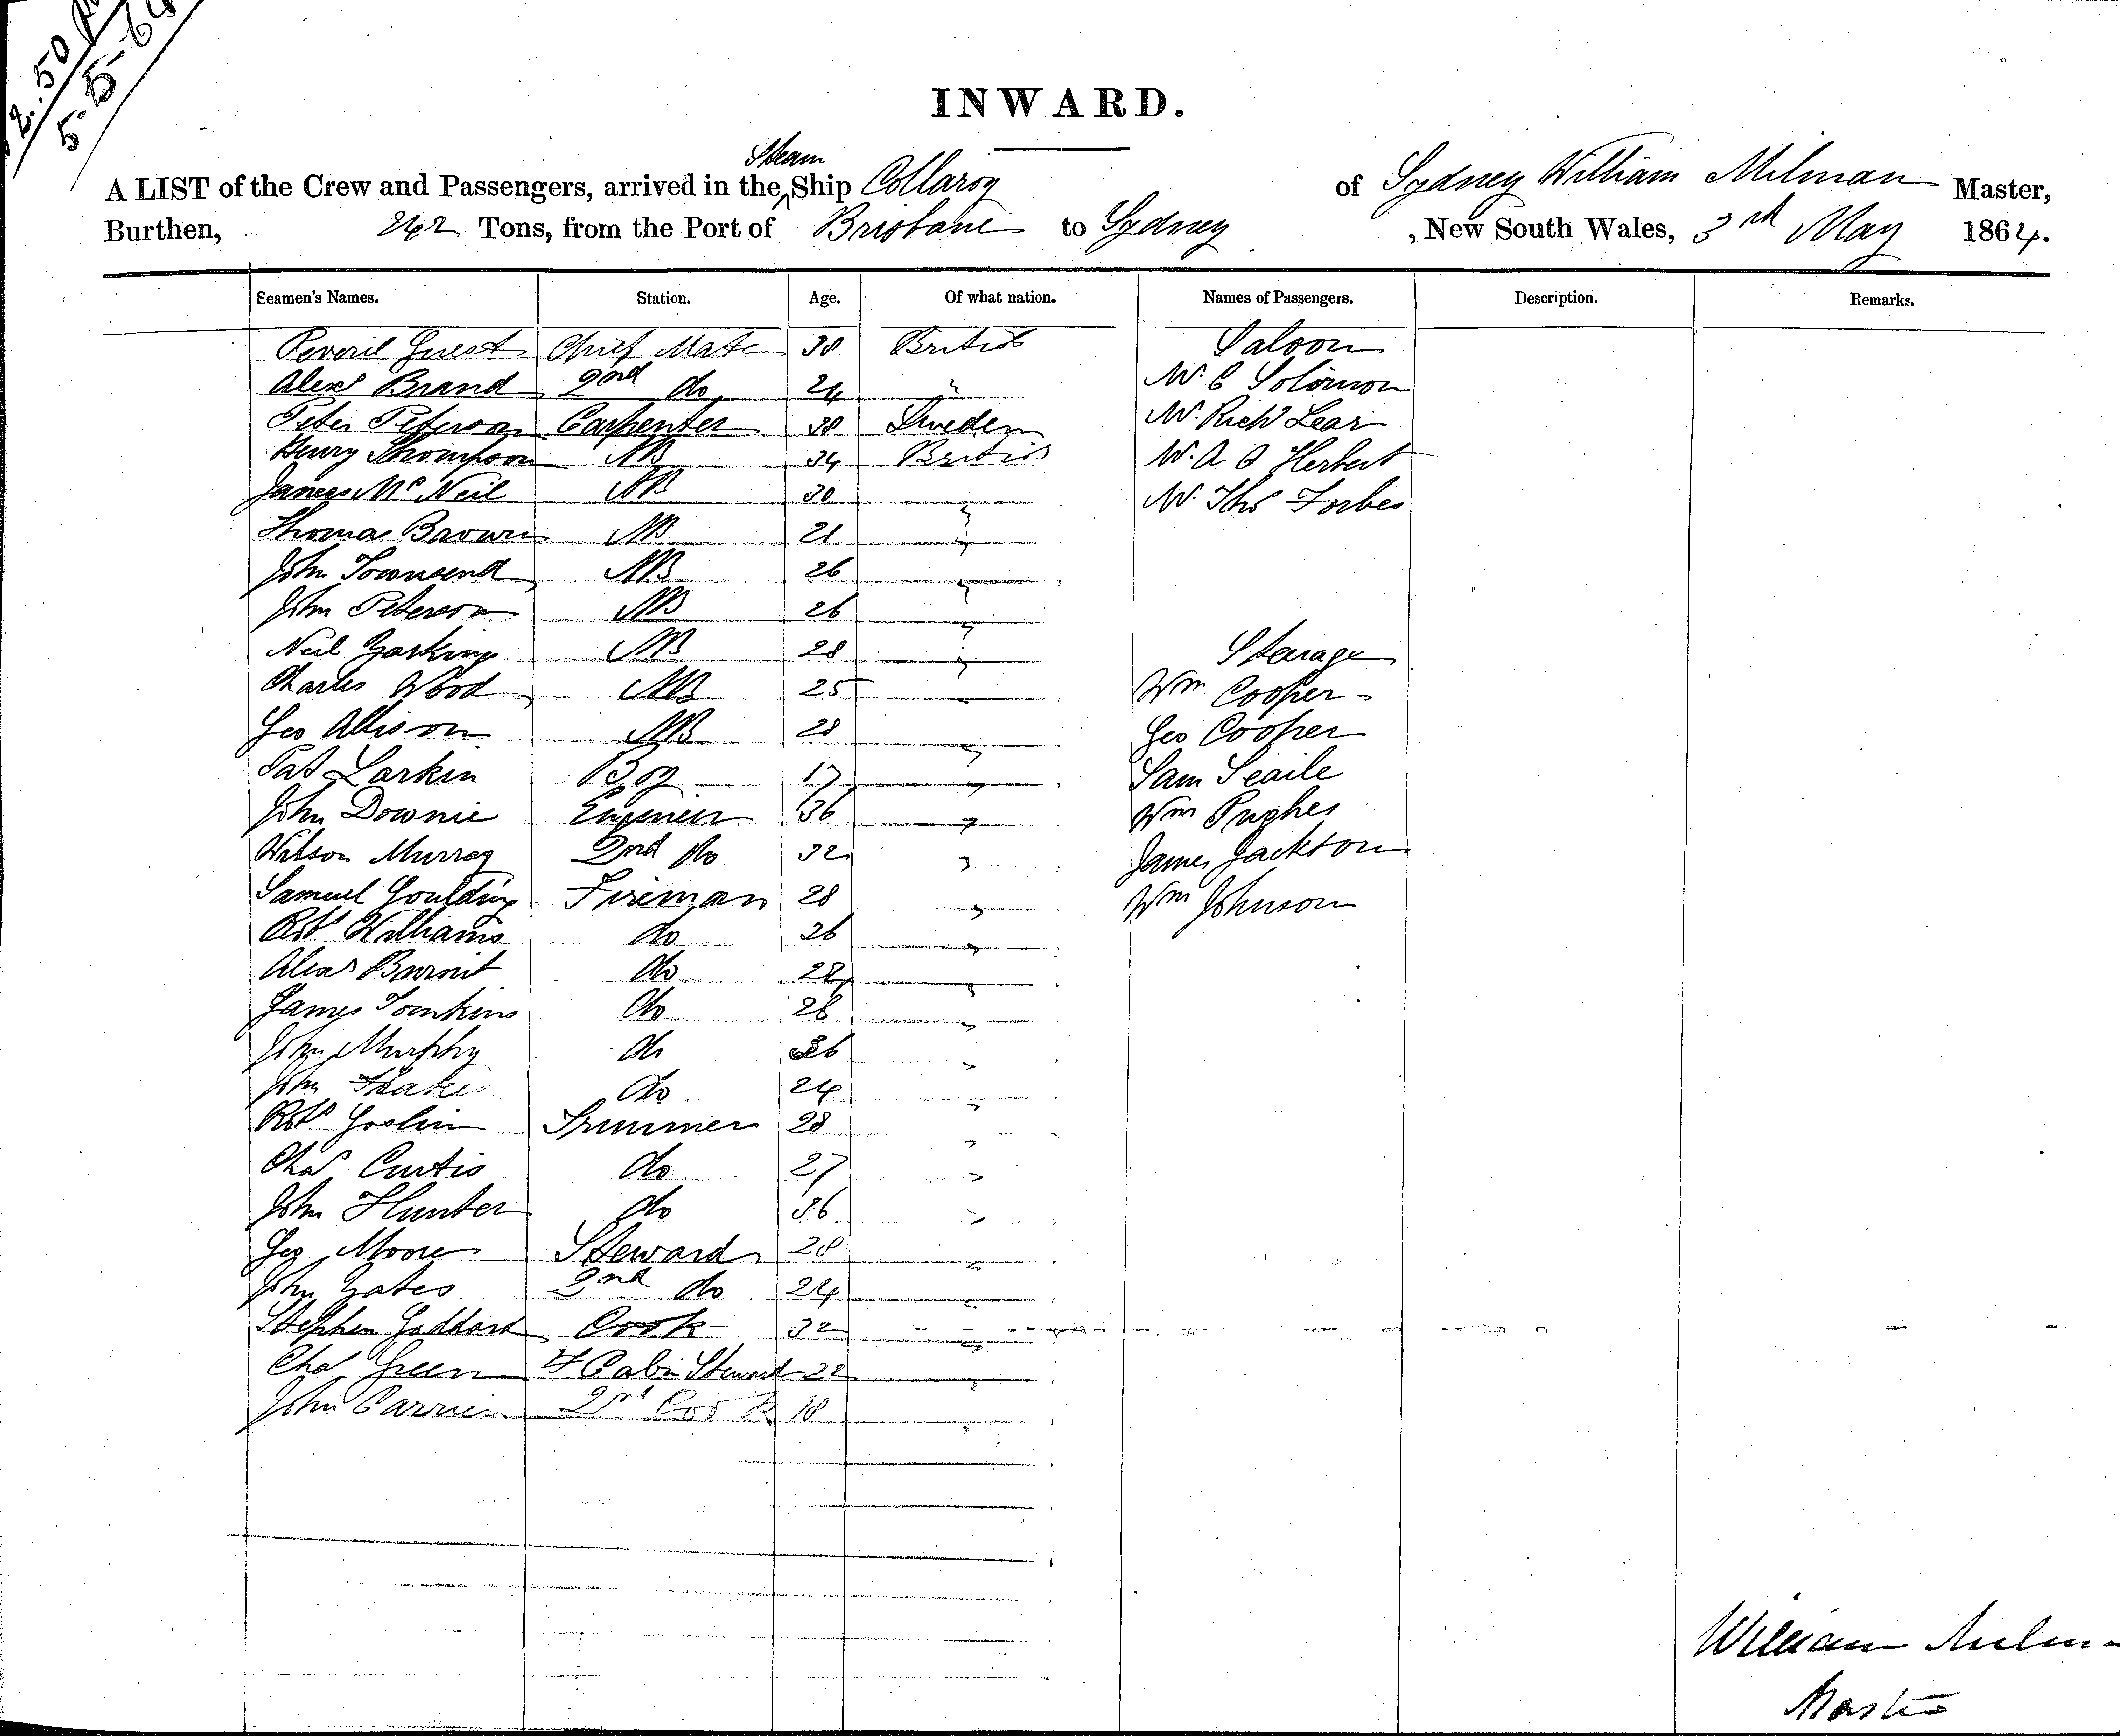 5.5.64
INWARD.
A LIST of the Crew and Passengers, arrived in the Steam Ship Collaroy of Sydney William Milman Master,
Burthen, 242 Tons, from the Port of Brisbane to Sydney, New South Wales, 3rd May 1864.
Seamen's Names. Station. Age. Of what nation. Names of Passengers. Description. Remarks.
Peveril Guest Chief Mate 38 British Saloon
Alexr Brand 2nd do 24 " Mr. C Solomon
Peter Peterson Carpenter 38 Sweden Mr. Richd Lear
Henry Thompson AB 34 British Mr. A O Herbert
James Mc Neil AB 30 " Mr. Thos Forbes
Thomas Brown AB 21 "
John Townsend AB 26 "
John Peterson AB 26 "
Neil AB 28 " Stearage
Charles Wood AB 25 " Wm Cooper
Geo Allison AB 28 " Geo Cooper
Pat Larkin Boy 17 " Sam
John Downie Engineer 36 " Wm Pughes
Wilson Murray 2nd do 32 " James Jackson
Samuel Goulding Fireman 28 " Wm Johnson
Robt Williams do 26 "
Alexr do "
James Tomkins do 28 "
John Murphy do 36 "
John do 24 "
Robt Goslin Trimmer 28 "
Chas Curtis do 27 "
John Hunter do 36 "
Geo Moore Steward 28 "
John Yates 2nd do 24 "
Stephen Goddard Cook 32 "
Chas Green F Cabin Steward 22 "
John 2nd Cook 18 "
William Milman
Master